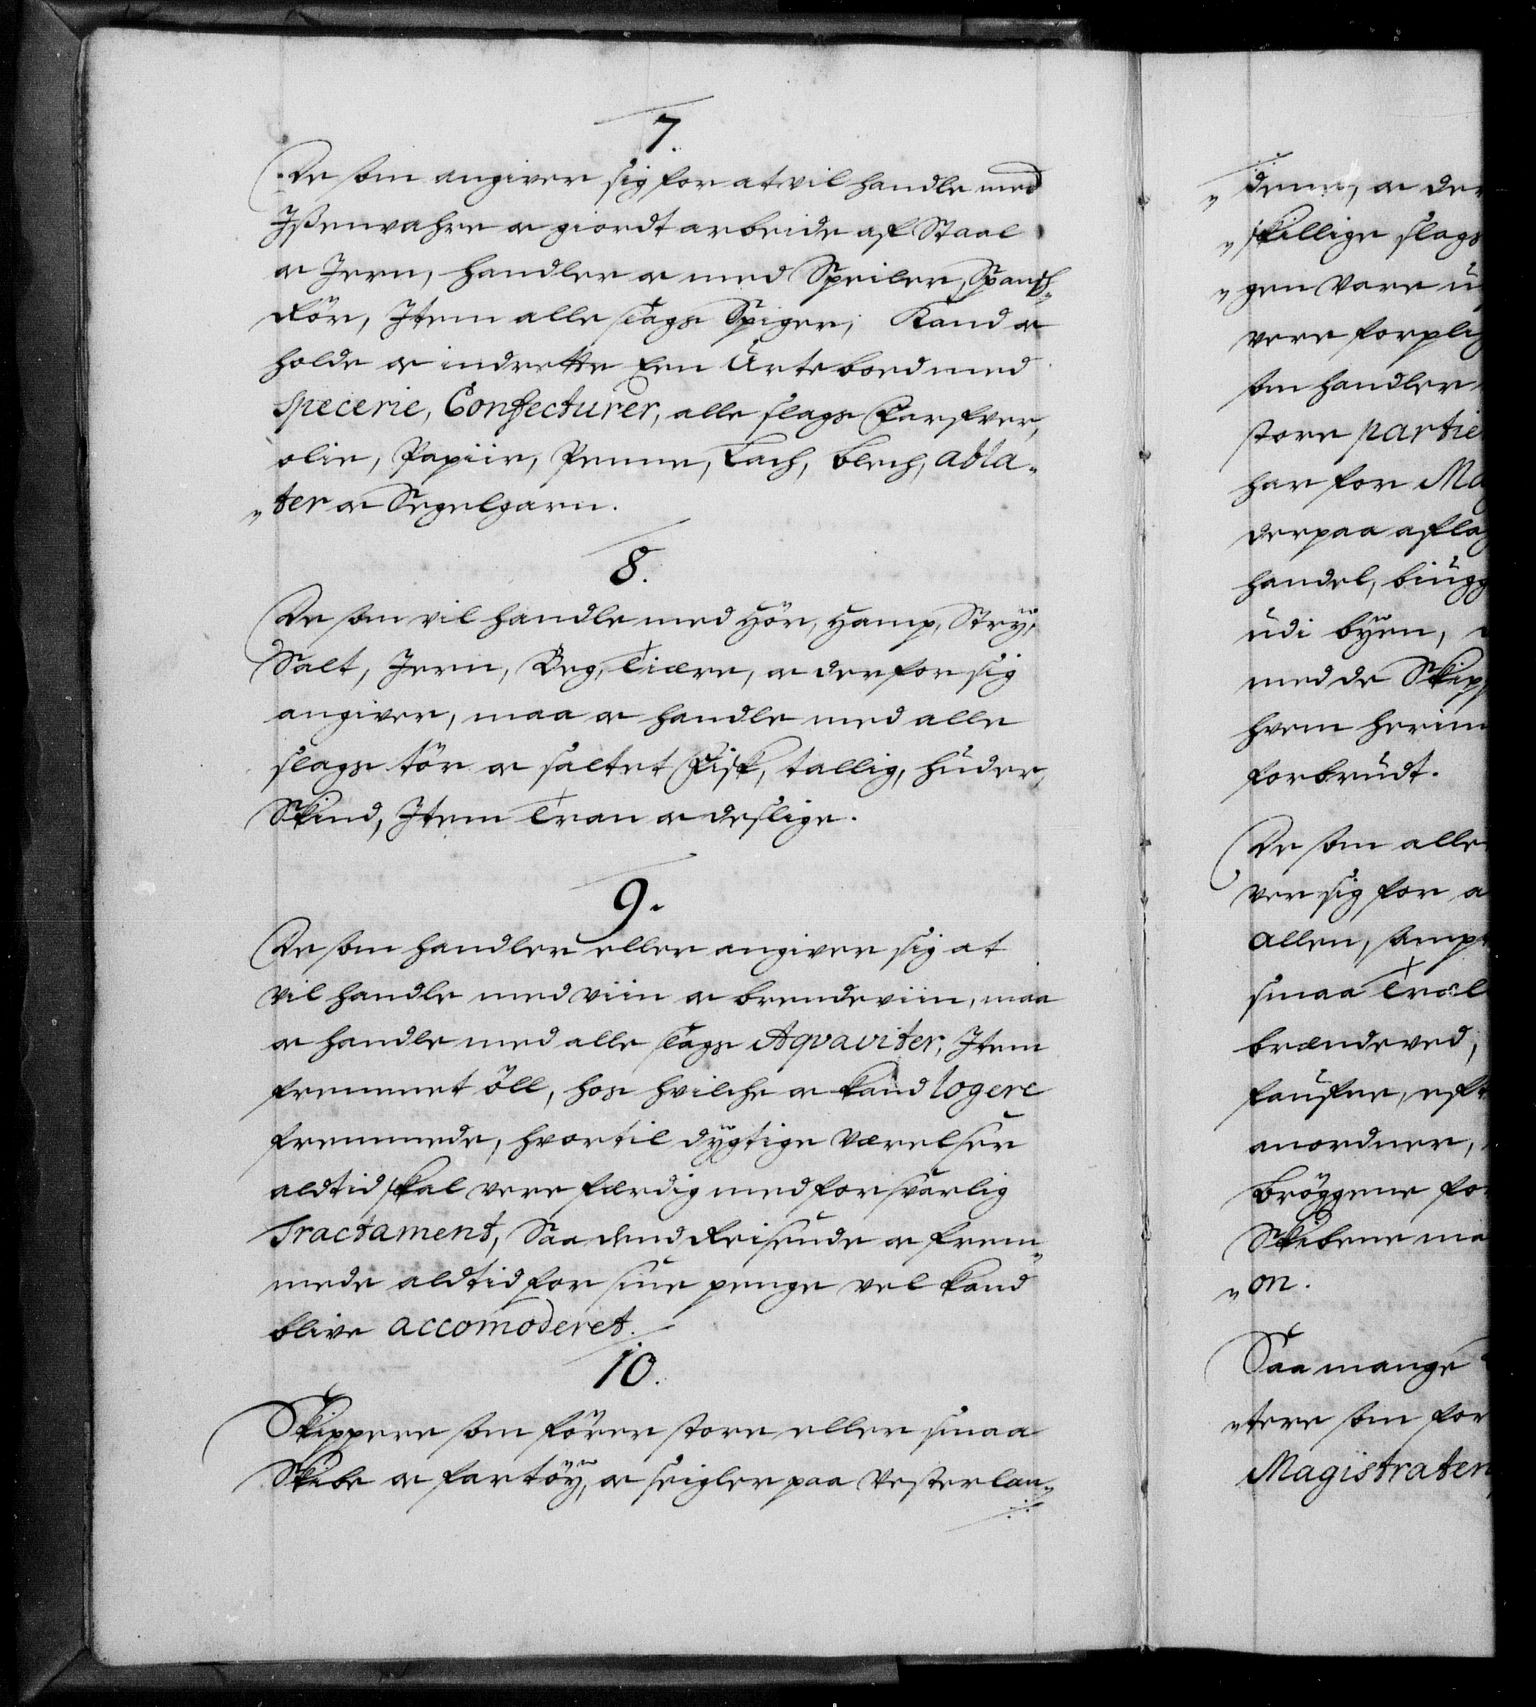 7.
De som angiver sig for at vil handle med
Isenvahre og giordt arbeide af Staal
og Jern, handler og med Speiler, Spansk-
Rör, Item alle slags Spiger; Kand og
holde og indrette Een Urteboed med
Specerie, Confecturer, alle slags Farfver,
olie, Papiir, Penne, Lach, blech, abla-
„ter og Segelgarn.
8.
De som vil handle med Hör, Hamp, Strÿ,
Salt, Jern, Beg, Tiære, og der for sig
angiver, maa og handle med alle
slags tör og saltet Fisk, tallig, huder,
Skind, Item Tran og deslige.
9.
De som handler eller angiver sig at
vil handle med viin og brendeviin, maa
og handle med alle slags Aqvaviter, Item
fremmet öll, hos hvilche og kand logere
fremmede, hvortil dÿgtige Værelser
aldtid skal vere færdig med forsvarlig
Tractament, Saa dend Reisende og frem-
mede aldtid for sine penge vel kand
blive accomoderet.
10.
Skippere som förer store eller smaa
Skibe og fartöÿ, og seigler paa Vesterlan-
„ og der
„skillige slags
„gen Vare u
vere forplig
som handler
store partie
har for Ma
derpaa aflag
handel, biugg
udi bÿen,
med de Skip
hvem herim
forbrudt.
De som alle
ver sig for a
allen, samp
smaa Træl
brændeved,
eft
anordner,
Bröggene for
Skibene ma
„on.
Saa mange
„tere som for
Magistraten